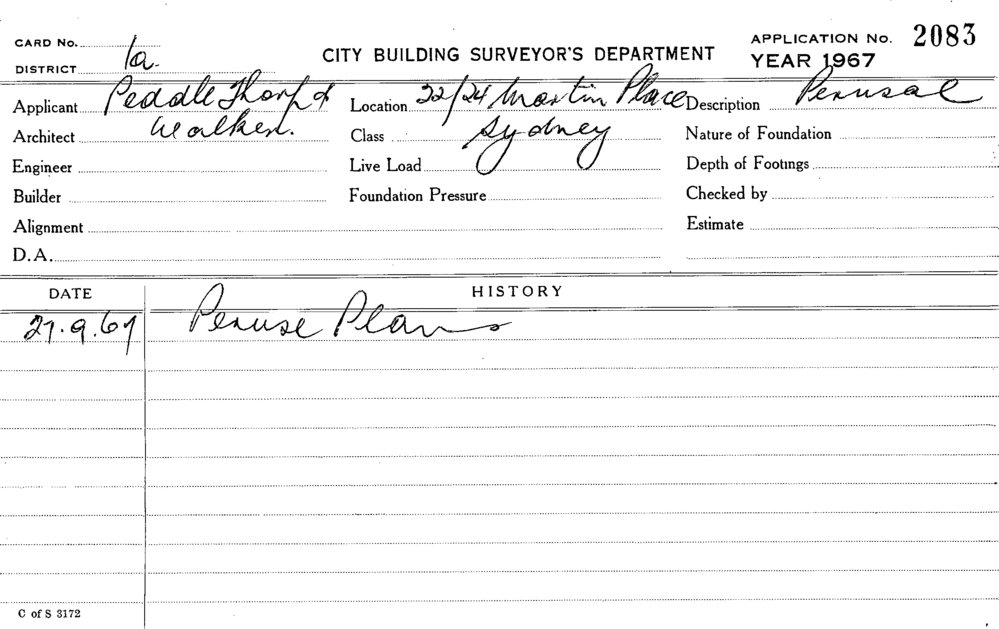 CARD No. 1a.
DISTRICT
CITY BUILDING SURVEYOR'S DEPARTMENT
APPLICATION No. 2083
YEAR 1967
Applicant Peddle Thorp &
Architect Walker.
Engineer
Builder
Alignment
D.A.
Location 22/24 Martin Place
Class Sydney
Live Load
Foundation Pressure
Description Perusal
Nature of Foundation
Depth of Footings
Checked by
Estimate
DATE HISTORY
27.9.67 Peruse Plans
C of S 3172